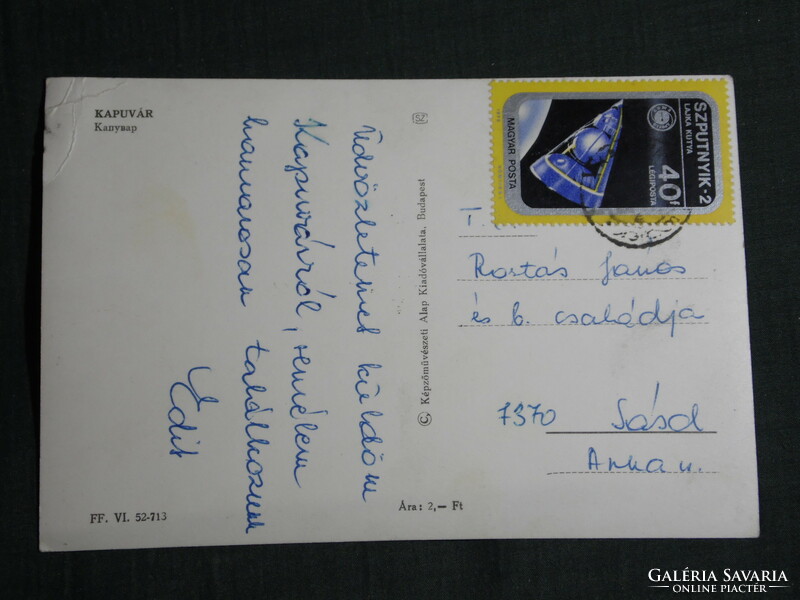 KAPUVÁR
Kanyvap
Üdvözletemet küldöm
Kapuvárról, remélem
hamarosan találkozunk
Edit
FF. VI. 52-713
© Képzőművészeti Alap Kiadóvállalata, Budapest
Ára: 2,— Ft
SZPUTNYIK-2
LAJKA KUTYA
40f
LÉGIPOSTA
MAGYAR POSTA
T.
Rostás János
és b. családja
7370 Sásd
GALÉRIA SAVARIA
ONLINE PIACTÉR